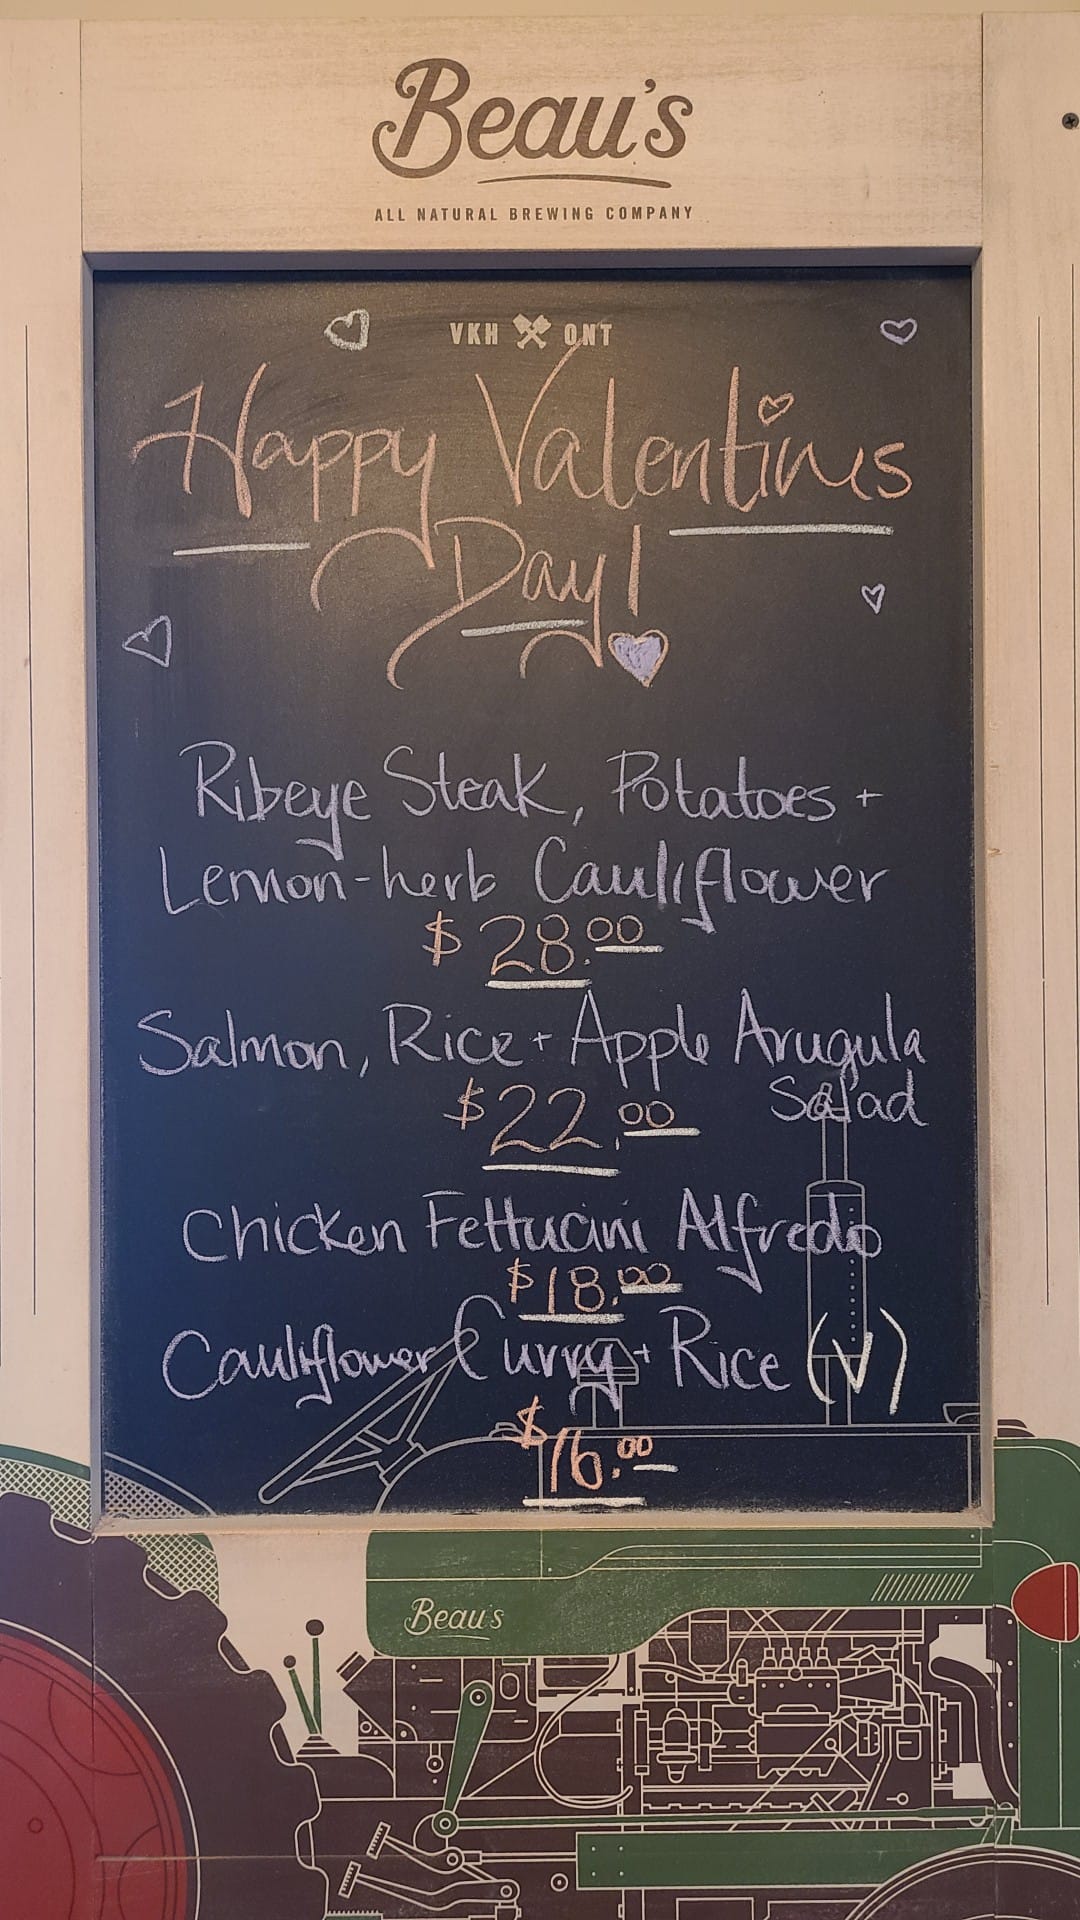 Beau's
ALL NATURAL BREWING COMPANY
VKH ONT
Happy Valentines
Day!
Ribeye Steak, Potatoes +
Lemon-herb Cauliflower
$ 28.00
Salmon, Rice + Apple Arugula
Salad
$22.00
Chicken Fettucini Alfredo
$18.00
Cauliflower Curry + Rice (V)
$16.00
Beau's